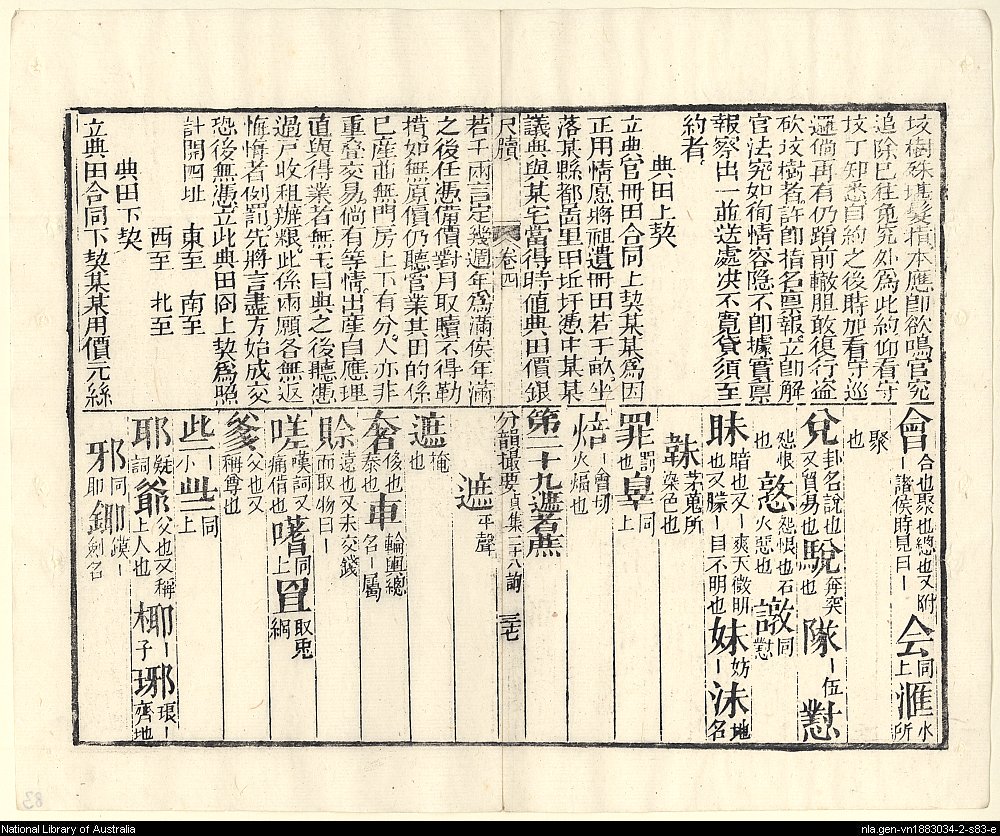 坟樹殊堪髮指本應即欲鳴官究
追除已往冤究外爲此約仰看守
坟丁知悉自約之後時加看守巡
邏倘再有仍蹈前轍胆敢復行盜
砍坟樹者許即指名禀報立即解
官法究如徇情容隱不即據實禀
報察出一並送處决不寬貸須至
約者
典田上契
立典官冊田合同上契某某爲因
正用情愿將祖遺冊田若干畝坐
落某縣都啚里甲坵圩憑中某某
議典與某宅當得時值典田價銀
尺牘 卷四
若干兩言定幾週年爲滿侯年滿
之後任憑備價對月取贖不得勒
揹如無原價仍聽管業其田的係
已産並無門房上下有分人亦非
重叠交易倘有等情出産自應理
直與得業者無干自典之後聽憑
過戸收租辦粮此係兩願各無返
悔悔者例罰先將言盡方始成交
恐後無憑立此典田合同上契爲照
計開四址 東至 南至
西至 北至
典田下契
立典田合同下契某某用價元絲
會合也聚也總也又附—諸侯時見曰—会同上滙水所
聚也
兌卦名說也又貿易也駾奔突也隊—伍懟
怨恨也憝怨恨也石火惡也譈同懟
昧暗也又—爽天微明也又朦—目不明也妹妨—沬地名
韎茅蒐所染色也
罪罰也辠同上
焙—會切火煏也
第二十九遮者蔗
分韻撮要 貞集二十八韵 三七
遮平聲
遮掩也
奢侈也泰也車輪輿總名—屬
賒遠也又未交錢而取物曰—
嗟嘆詞又痛惜也𠿝同上罝取兎網
爹父也又稱尊也
些—小𡭟同上
耶疑詞爺父也又稱上人也椰—子琊琅—齊地
邪同耶鎁鏌—劍名
National Library of Australia
nla.gen-vn1883034-2-s83-e